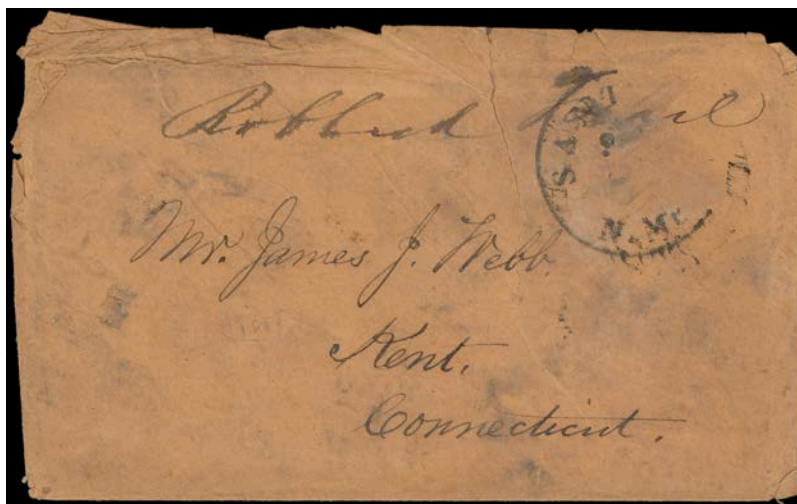 Robbed Mail
Mr. James J. Webb.
Kent.
Connecticut.